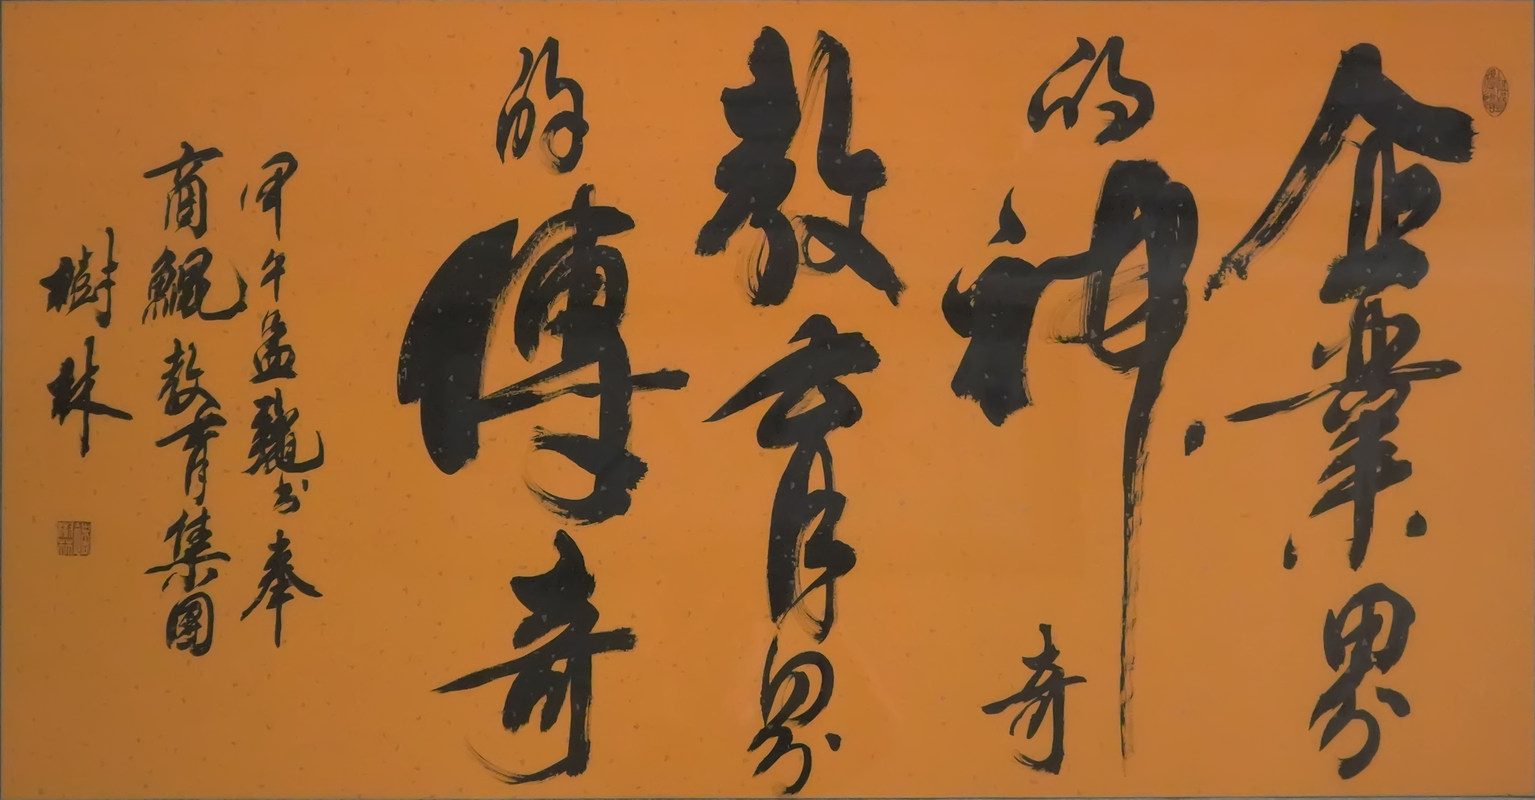 企業界
的神奇
教育界
的傳奇
甲午孟龝书奉
商鲲教育集團
樹林